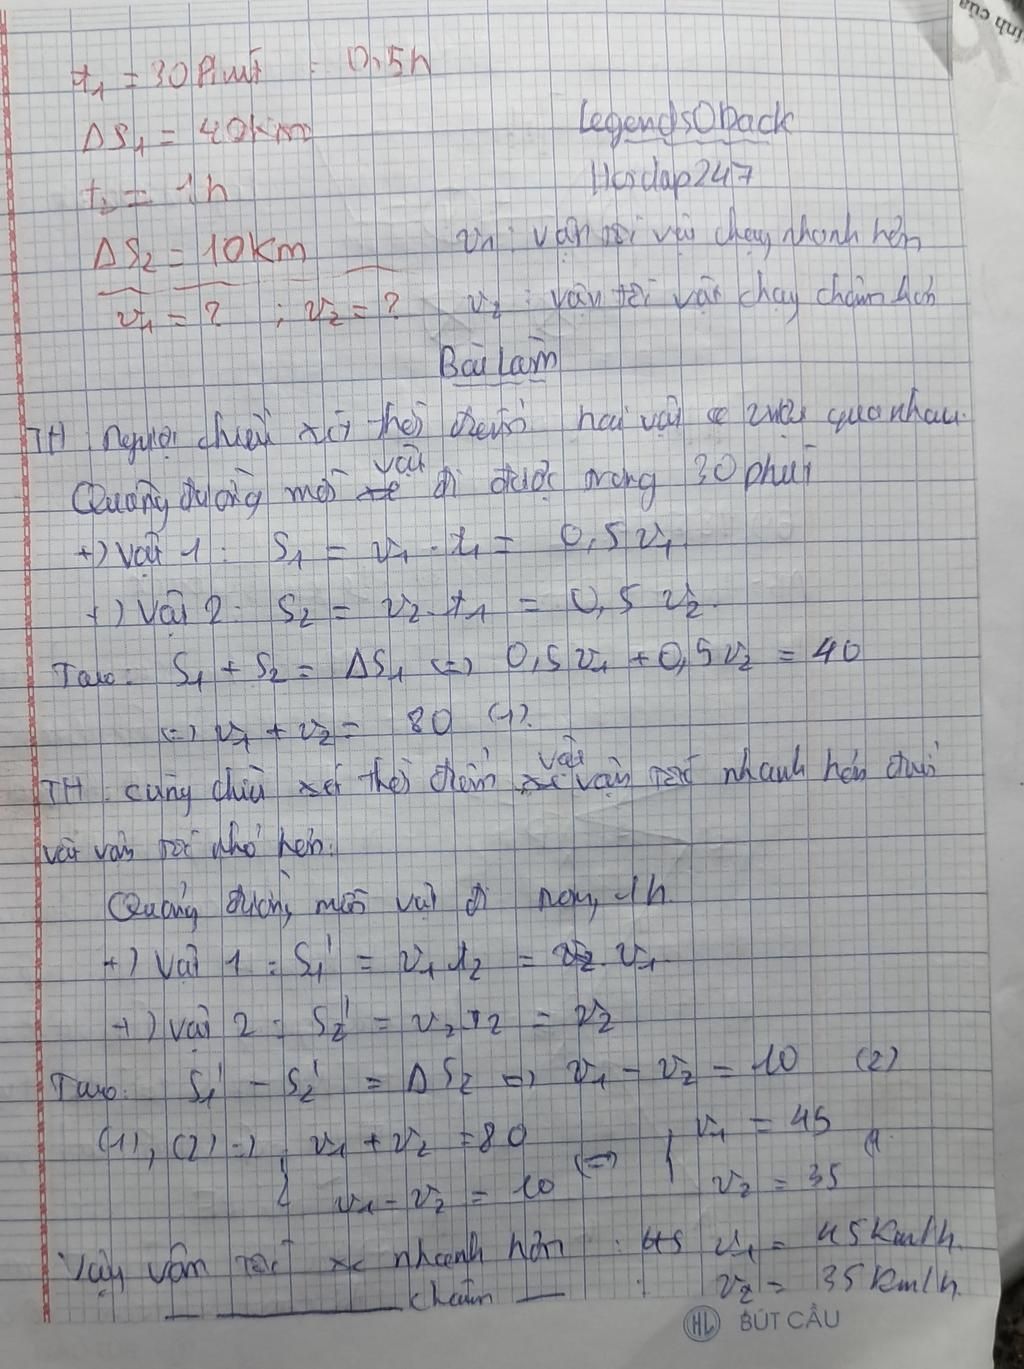 t₁ = 30 Phút = 0,5h
ΔS₁ = 40Km
t₂ = 1h
ΔS₂ = 10Km
v₁ = ? ; v₂ = ?
Legends0back
Hoidap247
v₁ : vận tối vật chạy nhanh hơn
v₂ : vận tối vật chạy chậm hơn
Bài Làm
TH : ngược chiều xét thời điểm hai vật vượt qua nhau.
Quãng đường mỗi vật đi được trong 30 phút
+) Vật 1 : S₁ = v₁ . t₁ = 0,5 v₁
+) Vật 2 : S₂ = v₂ . t₁ = 0,5 v₂.
Ta có : S₁ + S₂ = ΔS₁ <=> 0,5 v₁ + 0,5 v₂ = 40
<=> v₁ + v₂ = 80 (1).
TH : cùng chiều xét thời điểm vật vận tốc nhanh hơn đuổi
vật vận tốc nhỏ hơn.
Quãng đường mỗi vật đi trong 1h.
+) Vật 1 : S₁' = v₁ t₂ = v₁
+) Vật 2 : S₂' = v₂ t₂ = v₂
Ta có : S₁' - S₂' = ΔS₂ => v₁ - v₂ = 10 (2)
(1), (2) => { v₁ + v₂ = 80 <=> { v₁ = 45
v₁ - v₂ = 10 v₂ = 35
Vậy vận tốc xe nhanh hơn : v₁ = 45 Km/h.
chậm : v₂ = 35 Km/h.
HL BÚT CẦU